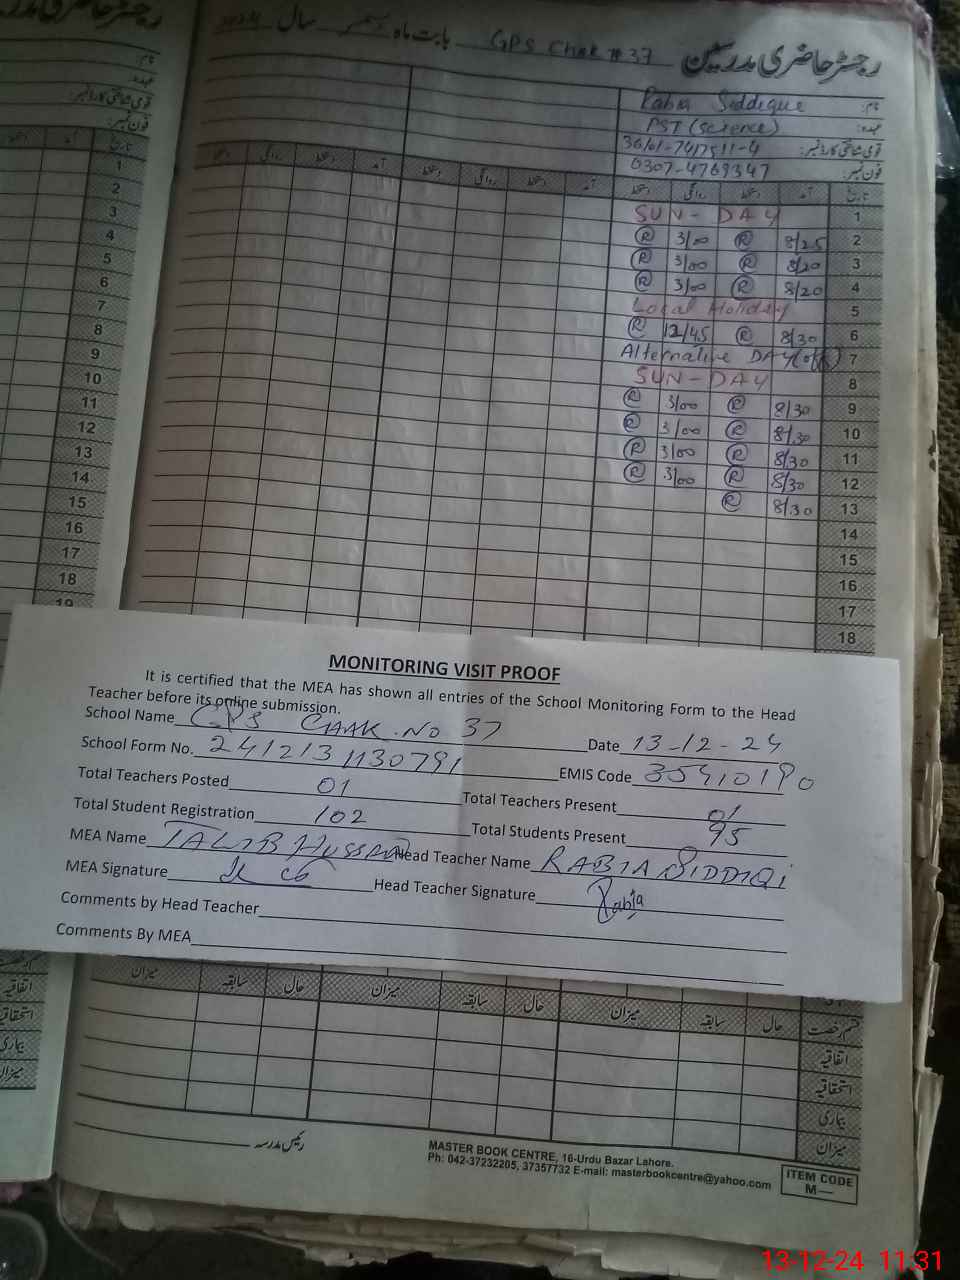 رجسٹر حاضری مدرسین GPS Chak # 37 بابت ماہ دسمبر سال
نام: Rabia Siddique
عہدہ: PST (science)
قومی شناختی کارڈ نمبر: 36101-7417511-4
فون نمبر: 0307-4769347
تاریخ آمد دستخط روانگی دستخط آمد دستخط روانگی دستخط
1 SUN - DAY
2 8/25 R 3/00 R
3 8/20 R 3/00 R
4 8/20 R 3/00 R
5 Local Holiday
6 8/30 R 12/45 R
7 Alternative DAY (off)
8 SUN - DAY
9 8/30 R 3/00 R
10 8/30 R 3/00 R
11 8/30 R 3/00 R
12 8/30 R 3/00 R
13 8/30 R
14
15
16
17
18
رجسٹر حاضری مدرسین
نام:
عہدہ:
قومی شناختی کارڈ نمبر:
فون نمبر:
تاریخ آمد
1
2
3
4
5
6
7
8
9
10
11
12
13
14
15
16
17
18
19
MONITORING VISIT PROOF
It is certified that the MEA has shown all entries of the School Monitoring Form to the Head
Teacher before its online submission.
School Name GPS CHAK NO 37 Date 13-12-24
School Form No. 2412131130791 EMIS Code 35410190
Total Teachers Posted 01 Total Teachers Present 01
Total Student Registration 102 Total Students Present 95
MEA Name TALIB HUSSAIN Head Teacher Name RABIA SIDDIQI
MEA Signature Head Teacher Signature Rabia
Comments by Head Teacher
Comments By MEA
قسم رخصت حال سابقہ میزان حال سابقہ میزان حال سابقہ میزان
اتفاقیہ
استحقاقیہ
بیماری
میزان
اتفاقیہ
استحقاقیہ
بیماری
میزان
رئیس مدرسہ
MASTER BOOK CENTRE, 16-Urdu Bazar Lahore.
Ph: 042-37232205, 37357732 E-mail: masterbookcentre@yahoo.com
ITEM CODE
M—
13-12-24 11:31